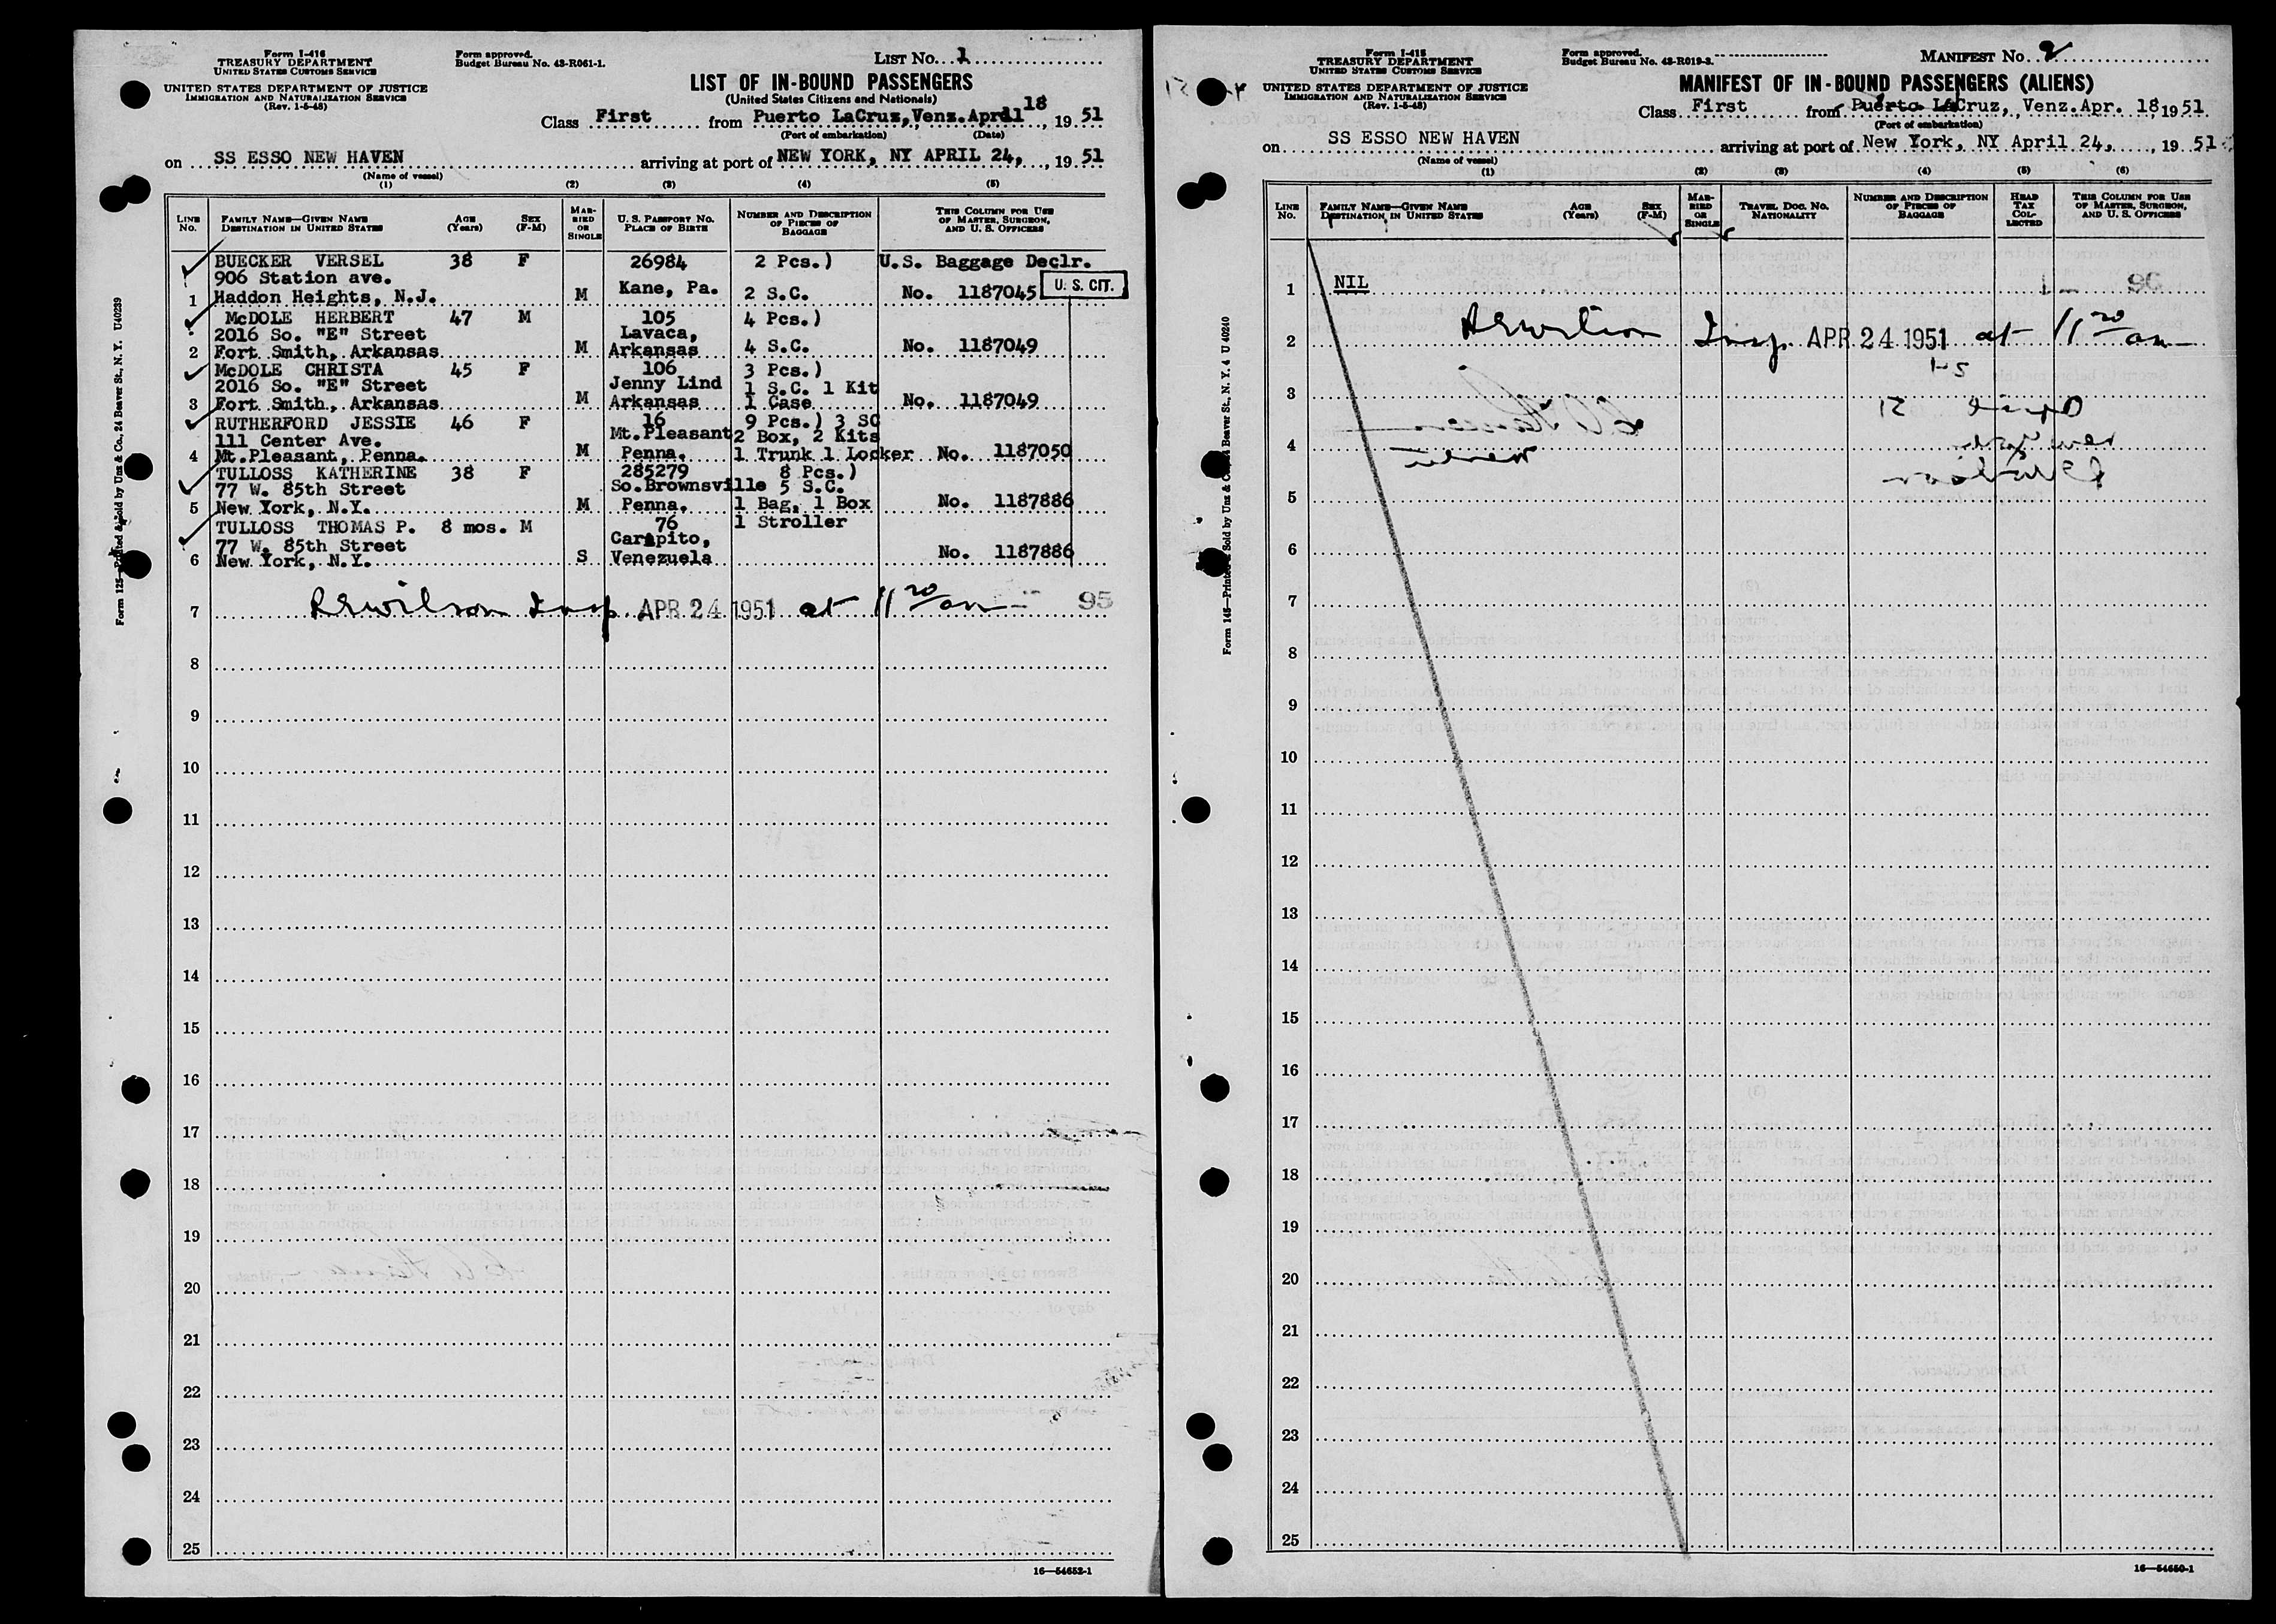 Form I-416
TREASURY DEPARTMENT
UNITED STATES CUSTOMS SERVICE
UNITED STATES DEPARTMENT OF JUSTICE
IMMIGRATION AND NATURALIZATION SERVICE
(Rev. 1-5-48)
Form approved.
Budget Bureau No. 43-R061-1.
LIST No. 1
LIST OF IN-BOUND PASSENGERS
(United States Citizens and Nationals)
Class First from Puerto LaCruz, Venz. April 18, 1951
(Port of embarkation) (Date)
on SS ESSO NEW HAVEN arriving at port of NEW YORK, NY APRIL 24, 1951
(Name of vessel)
(1) (2) (3) (4) (5)
LINE No. FAMILY NAME—GIVEN NAME DESTINATION IN UNITED STATES AGE (Years) SEX (F-M) MARRIED OR SINGLE U. S. PASSPORT No. PLACE OF BIRTH NUMBER AND DESCRIPTION OF PIECES OF BAGGAGE THIS COLUMN FOR USE OF MASTER, SURGEON, AND U. S. OFFICERS
BUECKER VERSEL 38 F 26984 2 Pcs.) U.S. Baggage Declr.
906 Station ave.
1 Haddon Heights, N.J. M Kane, Pa. 2 S.C. No. 1187045 U. S. CIT.
McDOLE HERBERT 47 M 105 4 Pcs.)
2016 So. "E" Street Lavaca,
2 Fort Smith, Arkansas M Arkansas 4 S.C. No. 1187049
McDOLE CHRISTA 45 F 106 3 Pcs.)
2016 So. "E" Street Jenny Lind 1 S.C. 1 Kit
3 Fort Smith, Arkansas M Arkansas 1 Case No. 1187049
RUTHERFORD JESSIE 46 F 16 9 Pcs.) 3 SC
111 Center Ave. Mt.Pleasant 2 Box, 2 Kits
4 Mt.Pleasant, Penna. M Penna. 1 Trunk 1 Locker No. 1187050
TULLOSS KATHERINE 38 F 285279 8 Pcs.)
77 W. 85th Street So.Brownsville 5 S.C.
5 New York, N.Y. M Penna. 1 Bag, 1 Box No. 1187886
TULLOSS THOMAS P. 8 mos. M 76 1 Stroller
77 W. 85th Street Caripito,
6 New York, N.Y. S Venezuela No. 1187886
7 R E Wilson Insp. APR 24 1951 at 11 20 am 95
8
9
10
11
12
13
14
15
16
17
18
19
20
21
22
23
24
25
16—54652-1
Form 125—Printed & Sold by Unz & Co., 24 Beaver St., N. Y. U40239
Form I-415
TREASURY DEPARTMENT
UNITED STATES CUSTOMS SERVICE
UNITED STATES DEPARTMENT OF JUSTICE
IMMIGRATION AND NATURALIZATION SERVICE
(Rev. 1-5-48)
Form approved.
Budget Bureau No. 43-R019-3.
MANIFEST No. 2
MANIFEST OF IN-BOUND PASSENGERS (ALIENS)
Class First from Puerto LaCruz, Venz. Apr. 18, 1951
(Port of embarkation)
on SS ESSO NEW HAVEN arriving at port of New York, NY April 24, 1951
(Name of vessel)
(1) (2) (3) (4) (5) (6)
LINE No. FAMILY NAME—GIVEN NAME DESTINATION IN UNITED STATES AGE (Years) SEX (F-M) MARRIED OR SINGLE TRAVEL DOC. No. NATIONALITY NUMBER AND DESCRIPTION OF PIECES OF BAGGAGE HEAD TAX COLLECTED THIS COLUMN FOR USE OF MASTER, SURGEON, AND U. S. OFFICERS
1 NIL 96
2 R E Wilson Insp. APR 24 1951 at 11 20 am
3
4
5
6
7
8
9
10
11
12
13
14
15
16
17
18
19
20
21
22
23
24
25
16—54650-1